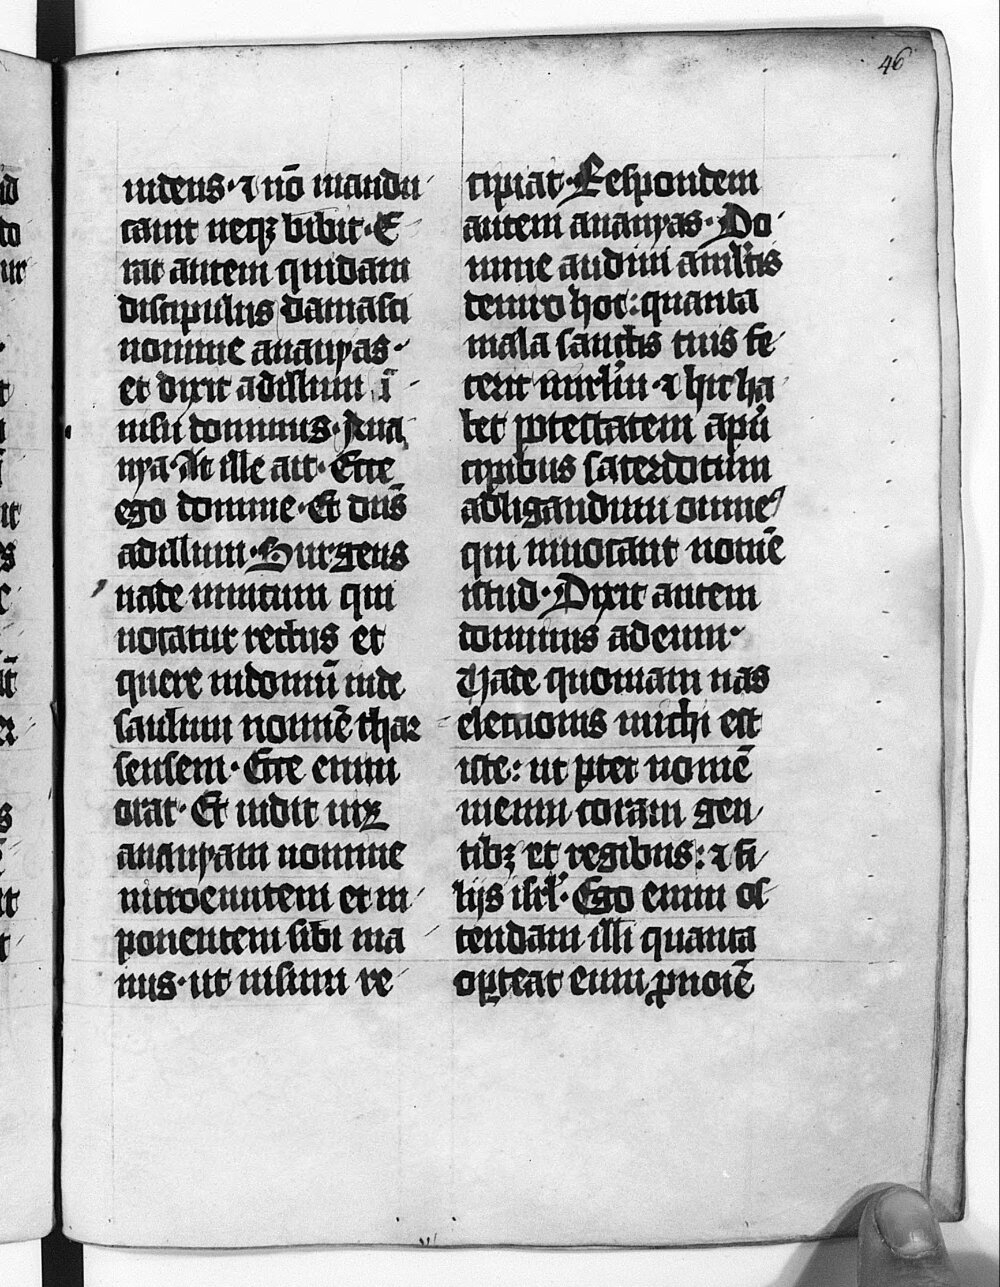 46
uidens · ⁊ nō mandu
cauit neqꝫ bibit · E
rat autem quidam
discipulus damasci
nomine ananyas ·
et dixit ad illum ī
uisu dominus · Ana
nya · At ille ait · Ecce
ego domine · Et dn̄s
ad illum · Surgens
uade in uicum qui
uocatur rectus et
quere in domū iude
saulum nomīe thar
sensem · Ecce enim
orat · Et uidit uiꝝ
ananyam nomine
introeuntem et in
ponentem sibi ma
nus · ut uisum re
cipiat · Respondem
autem ananyas · Do
mine audiui a mĺtis
de uiro hoc : quanta
mala sanctis tuis fe
cerit in irłm · ⁊ hic ha
bet potestatem a pⁱn
cipibus sacerdotum
adligandum omnes
qui inuocant nomē
istud · Dixit autem
dominus ad eum ·
Uade quoniam uas
electionis michi est
iste : ut portet nomē
meum coram gen
tibꝫ et regibus : ⁊ fi
lijs isrł · Ego enim os
tendam illi quanta
oporteat eum ꝓ noīe